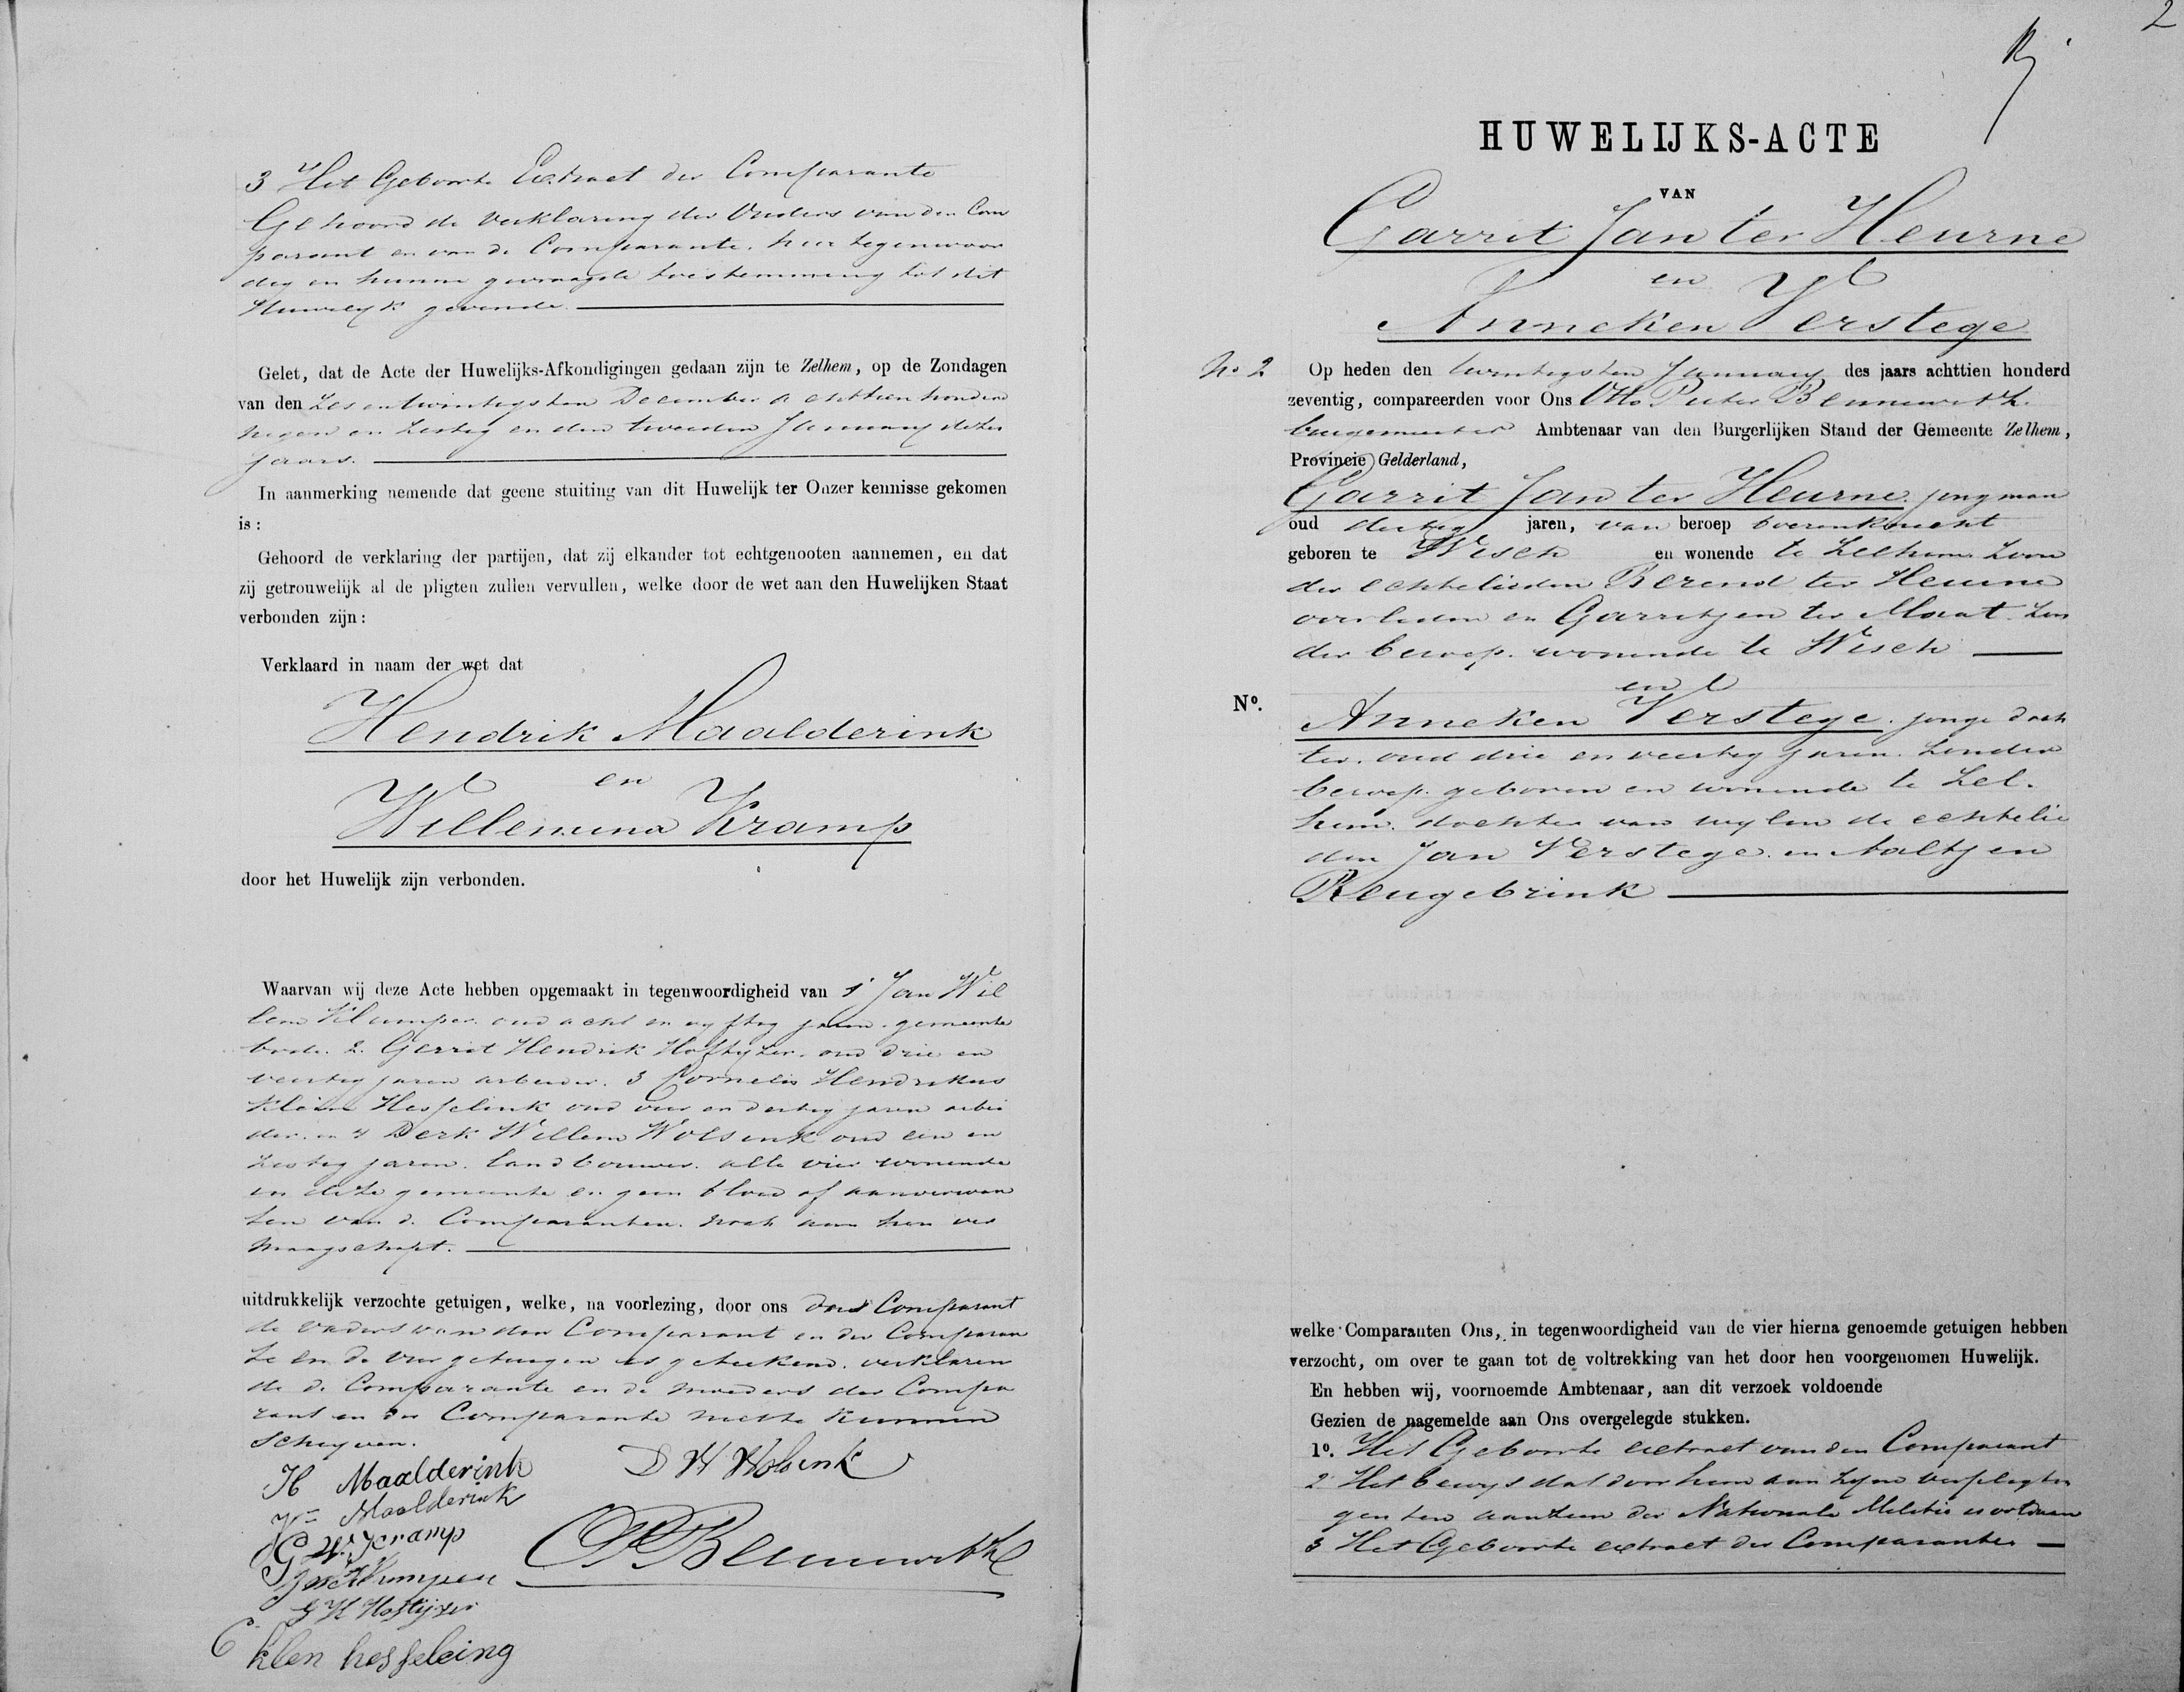 3 Het Geboorte Extract der Comparante
Gehoord de verklaring der Ouders van den Com
parant en van de Comparante. hier tegenwoor
dig en hunne gevraagde toestemming tot dit
Huwelyk gevende.
Gelet, dat de Acte der Huwelijks-Afkondigingen gedaan zijn te Zelhem, op de Zondagen
van den Zes en twintigsten December achttien honderd
negen en zestig en den tweeden January dezes
jaars.
In aanmerking nemende dat geene stuiting van dit Huwelijk ter Onzer kennisse gekomen
is:
Gehoord de verklaring der partijen, dat zij elkander tot echtgenooten aannemen, en dat
zij getrouwelijk al de pligten zullen vervullen, welke door de wet aan den Huwelijken Staat
verbonden zijn:
Verklaard in naam der wet dat
Hendrik Maalderink
en
Willemina Kramp
door het Huwelijk zijn verbonden.
Waarvan wij deze Acte hebben opgemaakt in tegenwoordigheid van 1 Jan Wil
lem Klumper. oud acht en vyftig jaren. gemeente
bode. 2. Gerrit Hendrik Hoftyzer. oud drie en
veertig jaren arbeider. 3 Cornelis Hendrikus
Klein Hesselink oud vier en dertig jaren arbei
der. en 4 Derk Willem Wolsink oud een en
zestig jaren. landbouwer. alle vier wonende
in deze gemeente en geen bloed of aanverwan
ten van de Comparanten. noch aan hen ver
maagschapt.
uitdrukkelijk verzochte getuigen, welke, na voorlezing, door ons den Comparant
de vaders van den Comparant en der Comparan
te en de vier getuigen is geteekend. verklaren
de de Comparante en de moeders des Compa
rant en der Comparante niet te kunnen
Schryven.
H Maalderink
Maalderink
G W Kramp
JW Klumper
G H Hoftijzer
C klen hesseleing
D W Wolsink
OP Bennewitz
2
HUWELIJKS-ACTE
VAN
Garrit Jan ter Heurne
en
Anneken Verstege
No 2 Op heden den twintigsten January des jaars achttien honderd
zeventig, compareerden voor Ons Otto Pieter Bennewitz.
burgemeester Ambtenaar van den Burgerlijken Stand der Gemeente Zelhem,
Provincie Gelderland,
Garrit Jan ter Heurne. jongman
oud dertig jaren, van beroep boerenknecht
geboren te Wisch en wonende te Zelhem. Zoon
der echtelieden Berend ter Heurne
overleden en Garritjen ter Maat. zon
der beroep. wonende te Wisch
en
No.
Anneken Verstege. jonge doch
ter. oud drie en veertig jaren. zonder
beroep. geboren en wonende te Zel.
hem. dochter van wylen de echtelie
den Jan Verstege. en Aaltjen
Reugebrink
welke Comparanten Ons, in tegenwoordigheid van de vier hierna genoemde getuigen hebben
verzocht, om over te gaan tot de voltrekking van het door hen voorgenomen Huwelijk.
En hebben wij, voornoemde Ambtenaar, aan dit verzoek voldoende
Gezien de nagemelde aan Ons overgelegde stukken.
1o. Het Geboorte extract van den Comparant
2 Het bewys dat door hem aan zyne verpligtin
gen ten aanzien der Nationale Militie is voldaan
3 Het Geboorte extract der Comparante